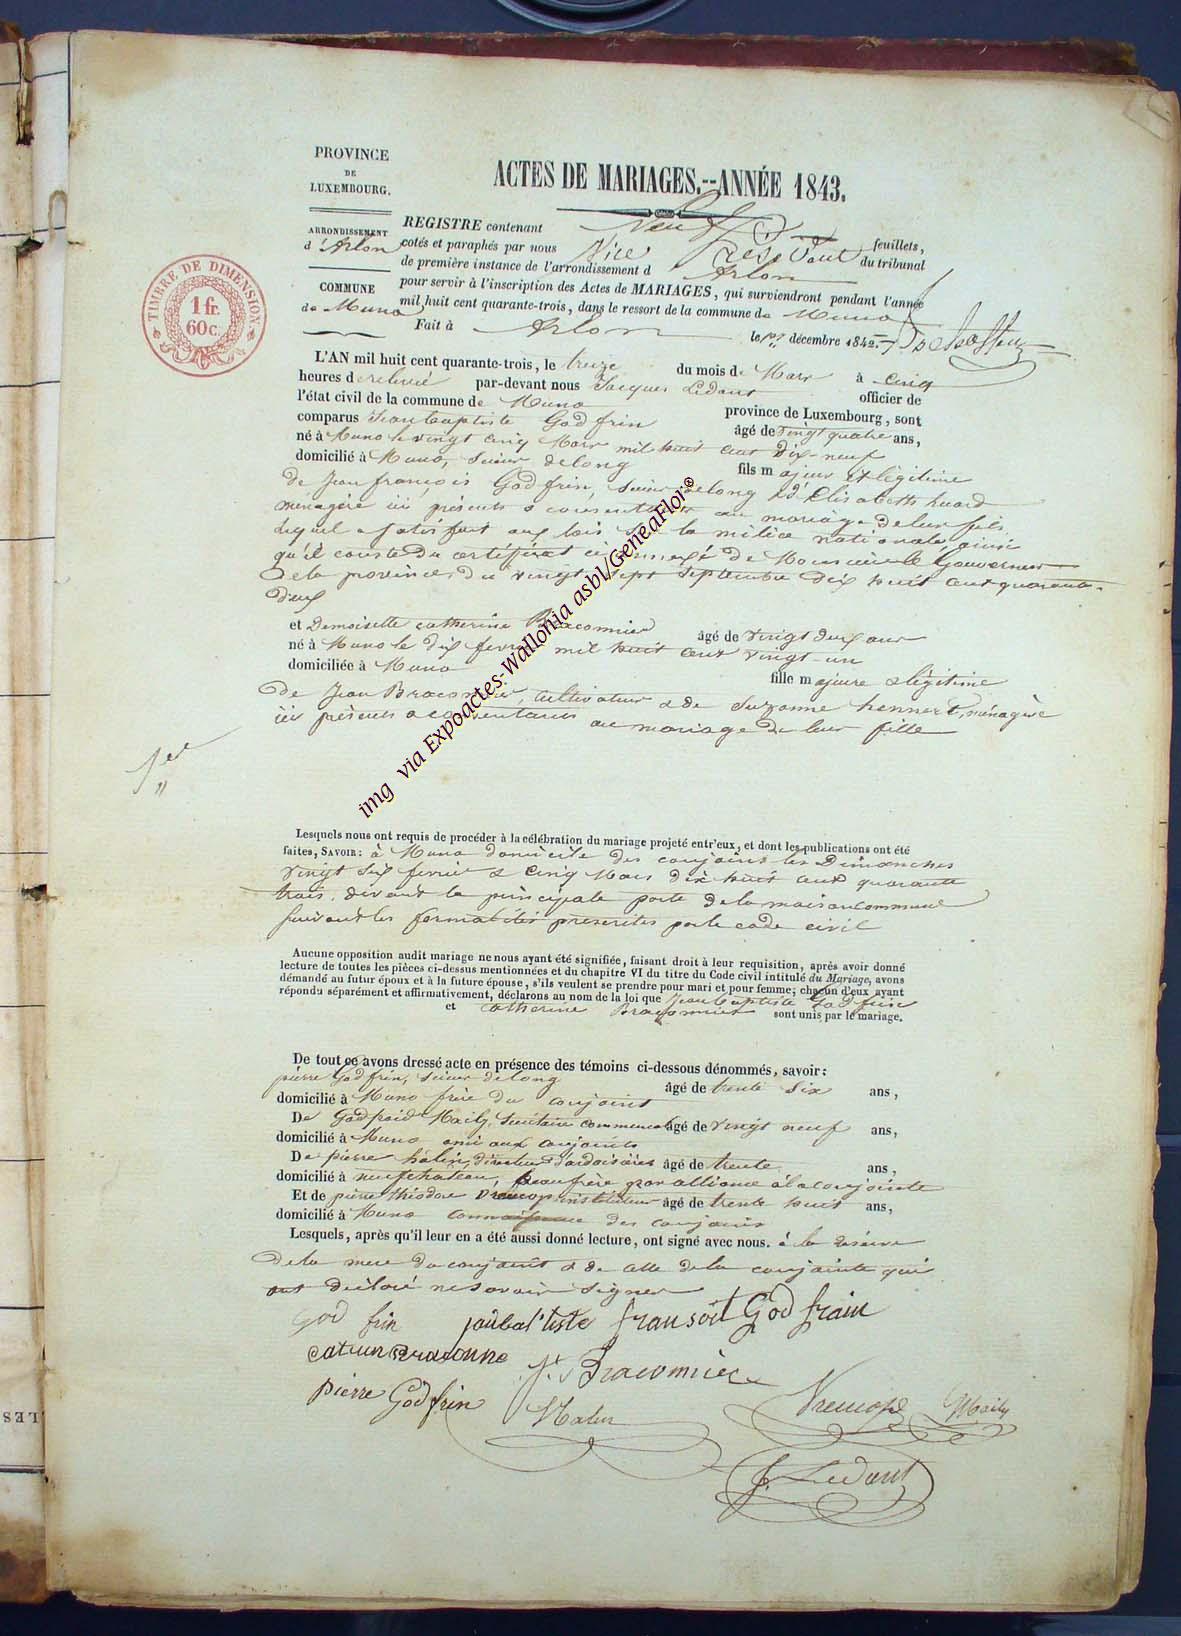 PROVINCE
DE
LUXEMBOURG.
ACTES DE MARIAGES.--ANNÉE 1843.
ARRONDISSEMENT
d'Arlon
COMMUNE
de Muno
TIMBRE DE DIMENSION.
1 fr.
60 c.
REGISTRE contenant Neuf feuillets,
cotés et paraphés par nous Vice Président du tribunal
de première instance de l'arrondissement d Arlon
pour servir à l'inscription des Actes de MARIAGES, qui surviendront pendant l'année
mil huit cent quarante-trois, dans le ressort de la commune de Muno
Fait à Arlon le 1er décembre 1842.
L'AN mil huit cent quarante-trois, le treize du mois de Mars à cinq
heures de relevée par-devant nous Jacques Ledant officier de
l'état civil de la commune de Muno province de Luxembourg, sont
comparus Jean baptiste Godfrin âgé de vingt quatre ans,
né à Muno le vingt cinq Mars mil huit cent dix-neuf
domicilié à Muno, scieur de long fils majeur et légitime
de Jean françois Godfrin, scieur de long & d'Elisabeth huard
ménagère ici présents & consentants au mariage de leur fils
lequel a satisfait aux lois sur la milice nationale, ainsi
qu'il conste du certificat ci annexé de Monsieur le Gouverneur
de la province, du vingt sept septembre dix huit cent quarante-
deux
et Demoiselle catherine Braconnier âgé de vingt deux ans
né à Muno le dix fevrier mil huit cent vingt-un
domiciliée à Muno fille majeure & légitime
de Jean Braconnier, cultivateur & de Suzanne hennert, ménagère
ici présents & consentants au mariage de leur fille
Lesquels nous ont requis de procéder à la célébration du mariage projeté entr'eux, et dont les publications ont été
faites, SAVOIR: à Muno domicile des conjoints les Dimanches
vingt six fevrier & cinq Mars dix huit cent quarante
trois, devant la principale porte de la maison commune
suivant les formalités prescrites par le code civil
Aucune opposition audit mariage ne nous ayant été signifiée, faisant droit à leur requisition, après avoir donné
lecture de toutes les pièces ci-dessus mentionnées et du chapitre VI du titre du Code civil intitulé du Mariage, avons
démandé au futur époux et à la future épouse, s'ils veulent se prendre pour mari et pour femme; chacun d'eux ayant
répondu séparément et affirmativement, déclarons au nom de la loi que Jean baptiste Godfrin
et Catherine Braconnier sont unis par le mariage.
De tout ce avons dressé acte en présence des témoins ci-dessous dénommés, savoir:
pierre Godfrin, scieur de long âgé de trente six ans,
domicilié à Muno frère du conjoint
De Godfroid Maily, secrétaire communal âgé de vingt neuf ans,
domicilié à Muno ami aux conjoints
De pierre halin, directeur d'ardoisières âgé de trente ans,
domicilié à neufchateau, beaufrère par alliance à la conjointe
Et de pierre thiodore instituteur âgé de trente huit ans,
domicilié à Muno connaissance des conjoints
Lesquels, après qu'il leur en a été aussi donné lecture, ont signé avec nous. à la réserve
de la mere du conjoint & de celle de la conjointe qui
ont déclaré ne savoir signer
God frin joubatiste fransoit Godfrain
catrun Braconne Jn Braconnier
pierre Godfrin Halin Maily
J. Ledant
img via Expoactes-Wallonia asbl/GeneaFlor©